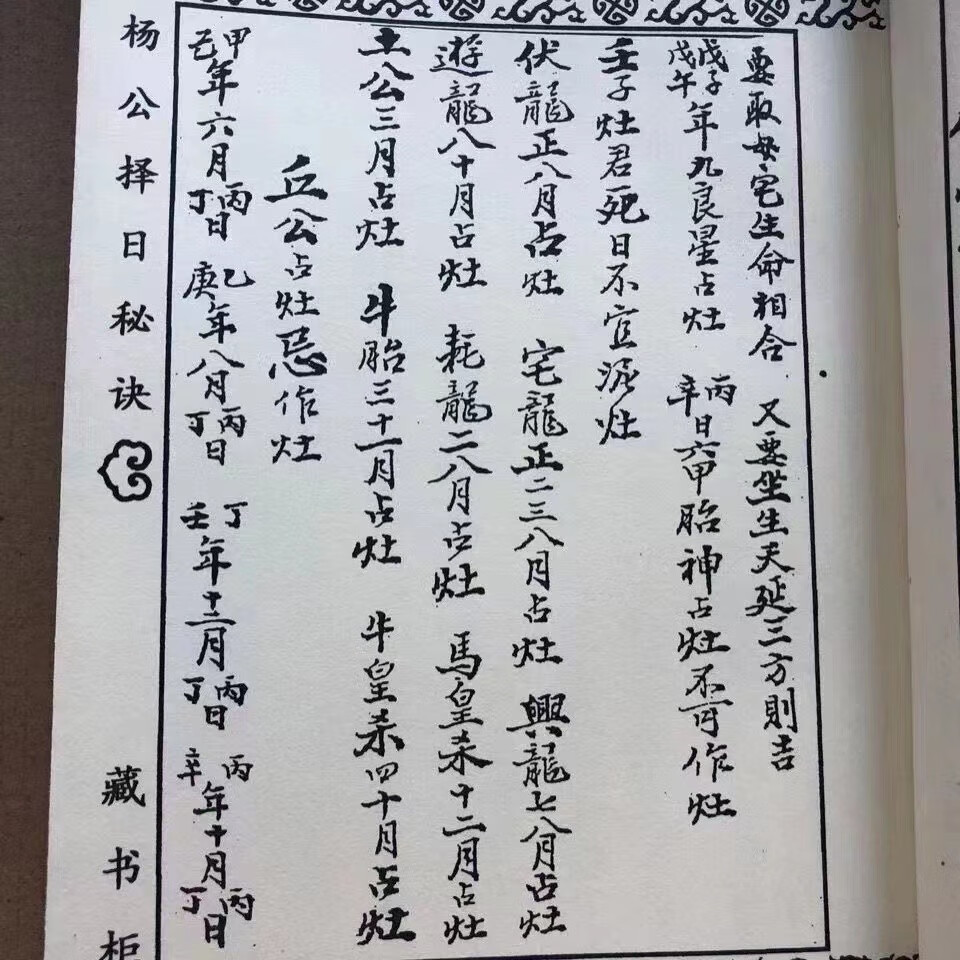 要取母宅生命相合 又要坐生天延三方則吉
戊子戊午年九良星占灶 丙辛日六甲胎神占灶不可作灶
壬子灶君死日不宜泥灶
伏龍正八月占灶 宅龍正二三八月占灶 興龍七八月占灶
遊龍八十月占灶 耗龍二八月占灶 馬皇杀十二月占灶
土公三月占灶 牛胎三十一月占灶 牛皇杀四十月占灶
丘公占灶忌作灶
甲己年六月丙丁日 乙庚年八月丙丁日 丁壬年十二月丙丁日 丙辛年十月丙丁日
杨公择日秘诀
藏书柜